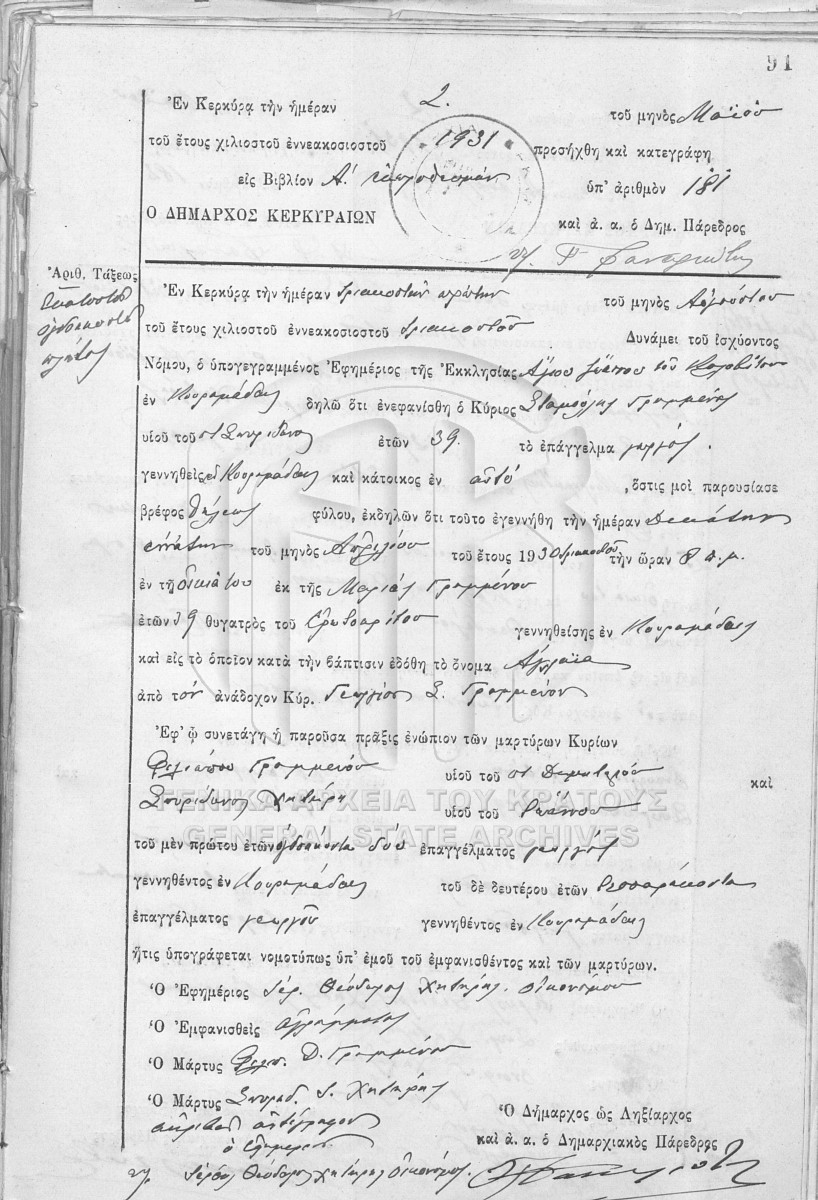 91
Ἐν Κερκύρᾳ τὴν ἡμέραν 2. τοῦ μηνὸς Μαΐου
τοῦ ἔτους χιλιοστοῦ ἐννεακοσιοστοῦ 1931 προσήχθη καὶ κατεγράφη
εἰς Βιβλίον Α' ἐκπροθέσμων ὑπ' ἀριθμὸν 181
Ο ΔΗΜΑΡΧΟΣ ΚΕΡΚΥΡΑΙΩΝ καὶ ἀ. α. ὁ Δημ. Πάρεδρος
Ἀριθ. Τάξεως
Ἑκατοστὸν
ὀγδοηκοστὸν
πρῶτον
Ἐν Κερκύρᾳ τὴν ἡμέραν τριακοστὴν πρώτην τοῦ μηνὸς Αὐγούστου
τοῦ ἔτους χιλιοστοῦ ἐννεακοσιοστοῦ τριακοστοῦ Δυνάμει τοῦ ἰσχύοντος
Νόμου, ὁ ὑπογεγραμμένος Ἐφημέριος τῆς Ἐκκλησίας Ἁγίου
ἐν Κουραμάδες δηλῶ ὅτι ἐνεφανίσθη ὁ Κύριος Σταμούλης Γραμμένος
υἱοῦ τοῦ Σπυρίδωνος ἐτῶν 39. τὸ ἐπάγγελμα γεωργός.
γεννηθεὶς ἐν Κουραμάδες καὶ κάτοικος ἐν αὐτό, ὅστις μοὶ παρουσίασε
βρέφος θήλεως φύλου, ἐκδηλῶν ὅτι τοῦτο ἐγεννήθη τὴν ἡμέραν Δεκάτην
ἐννάτην τοῦ μηνὸς Ἀπριλίου τοῦ ἔτους 1930 τριακοστοῦ τὴν ὥραν 8 π.μ.
ἐν τῇ οἰκίᾳ του ἐκ τῆς Μαρίας Γραμμένου
ἐτῶν 39 θυγατρὸς τοῦ γεννηθείσης ἐν Κουραμάδες
καὶ εἰς τὸ ὁποῖον κατὰ τὴν βάπτισιν ἐδόθη τὸ ὄνομα Ἀγλαΐα
ἀπὸ τὸν ἀνάδοχον Κύρ. Γεώργιος Σ. Γραμμένον
Ἐφ' ᾧ συνετάγη ἡ παροῦσα πρᾶξις ἐνώπιον τῶν μαρτύρων Κυρίων
Φιλίππου Γραμμένου υἱοῦ τοῦ καὶ
Σπυρίδωνος Χυτήρη υἱοῦ τοῦ Ἰωάννου
ΓΕΝΙΚΑ ΑΡΧΕΙΑ ΤΟΥ ΚΡΑΤΟΥΣ
GENERAL STATE ARCHIVES
τοῦ μὲν πρώτου ἐτῶν ὀγδοήκοντα δύο ἐπαγγέλματος γεωργός
γεννηθέντος ἐν Κουραμάδες τοῦ δὲ δευτέρου ἐτῶν τεσσαράκοντα
ἐπαγγέλματος γεωργοῦ γεννηθέντος ἐν Κουραμάδες
ἥτις ὑπογράφεται νομοτύπως ὑπ' ἐμοῦ τοῦ ἐμφανισθέντος καὶ τῶν μαρτύρων.
Ὁ Ἐφημέριος Ἱερ. Θεόδωρος Χυτήρης Οἰκονόμου
Ὁ Ἐμφανισθεὶς ἀγράμματος
Ὁ Μάρτυς Φίλιπ. Δ. Γραμμένος
Ὁ Μάρτυς Σπυρίδ. Ι. Χυτήρης
ἀκριβὲς ἀντίγραφον
ὁ ἐφημέριος
Ἱερεὺς Θεόδωρος Χυτήρης Οἰκονόμος
Ὁ Δήμαρχος ὡς Ληξίαρχος
καὶ ἀ. α. ὁ Δημαρχιακὸς Πάρεδρος